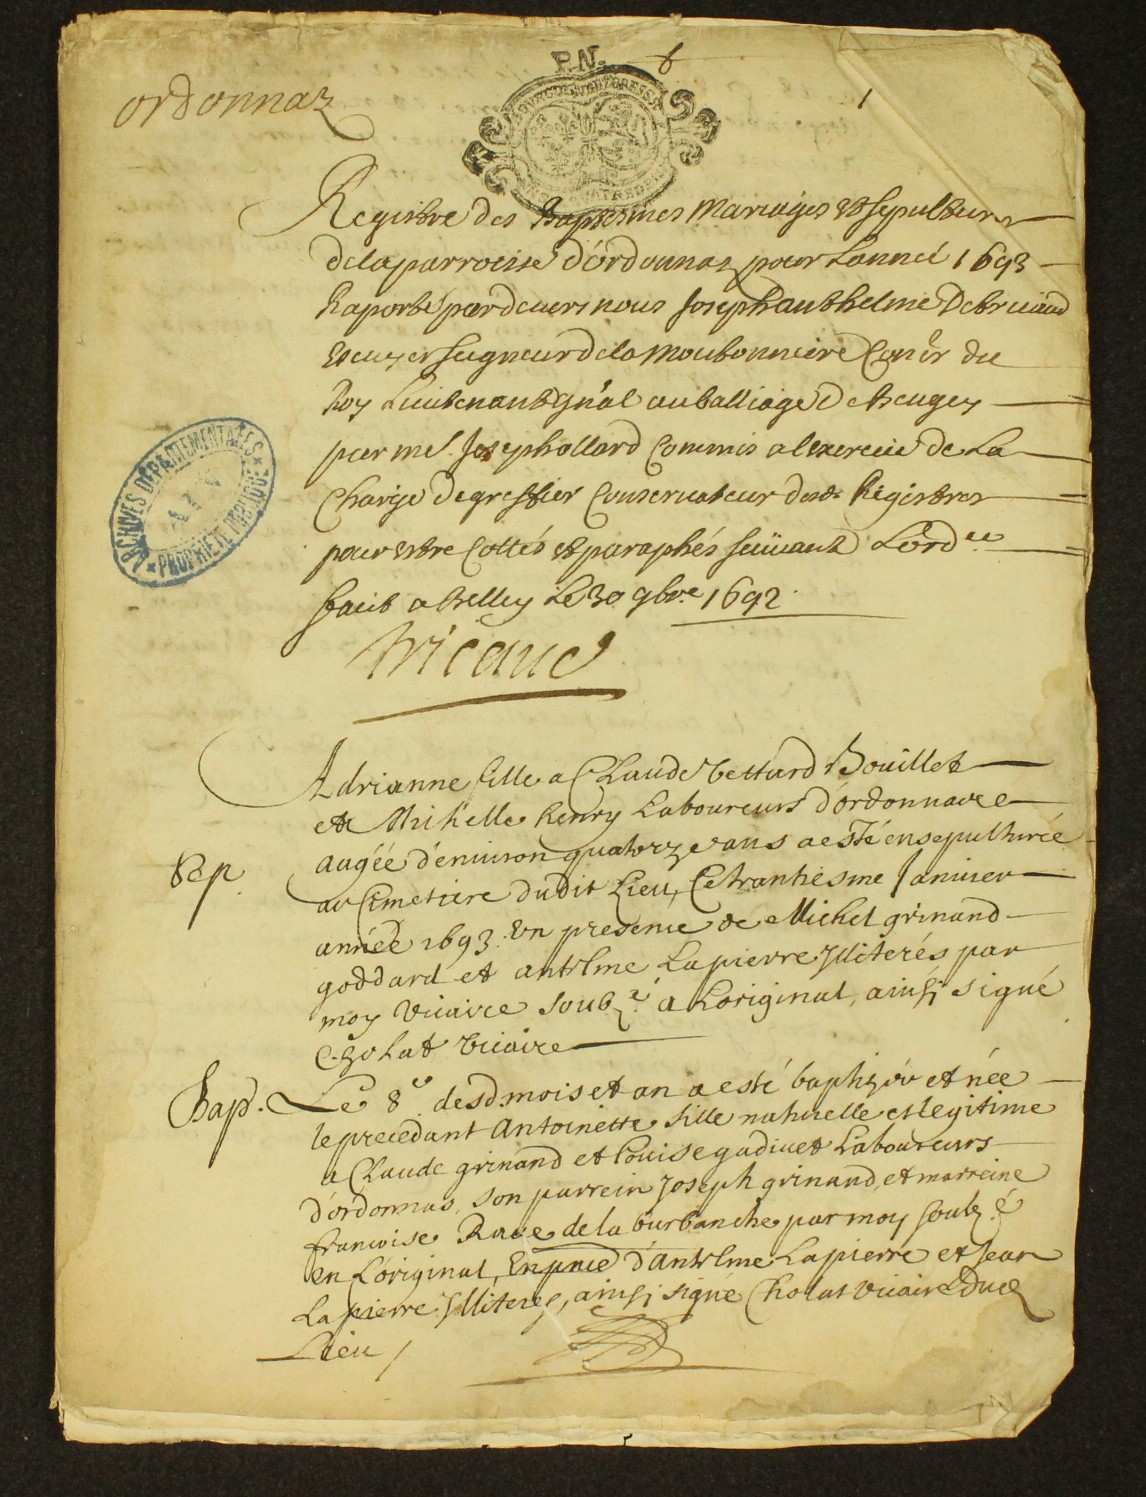 P.N. 6
ordonnaz
1
Registre des Baptesmes Mariages et sepultures
de la parroisse d'ordonnaz pour Lanneé 1693
Raporté pardevers nous Joseph anthelme
Escuyer seigneur de la Moutonniere Con.er du
Roy Lieutenant gn'al au balliage de beugey
par me. Joseph ollard Commis a lexercice de La
Charge de greffier Conservateur desd. Registres
pour estre Cottés et paraphés suivant Lord.ce
faict a belley Le 30 9bre 1692
tricaud
ARCHIVES DÉPARTEMENTALES
AIN
PROPRIÉTÉ PUBLIQUE
Adrianne fille a Claude Bouillet
et Michelle henry Laboureurs d'ordonnace
augéé d'enuiron quatorze ans a esté ensepulturée
au Cimetiere dudit Lieu, Ce trantiesme Januier
année 1693. En presence de Michel grinand
goddard et antelme Lapierre Illiterés par
moy Vicaire soub.né a Loriginal, ainsi signé
Cholat vicaire
Sep.
Bap. Le 8e desd mois et an a esté baptizée et née
le precedant Antoinette fille naturelle et legitime
a Claude grinand et Louise gudiuet Laboureurs
d'ordonnas, son parrein Joseph grinand, et marreine
francoise Raue de la burbanche par moy soub.né
en L'original, En pnce d'antelme Lapierre et Jean
Lapierre Illiteres, ainsi signé Cholat vicaire dud
Lieu /